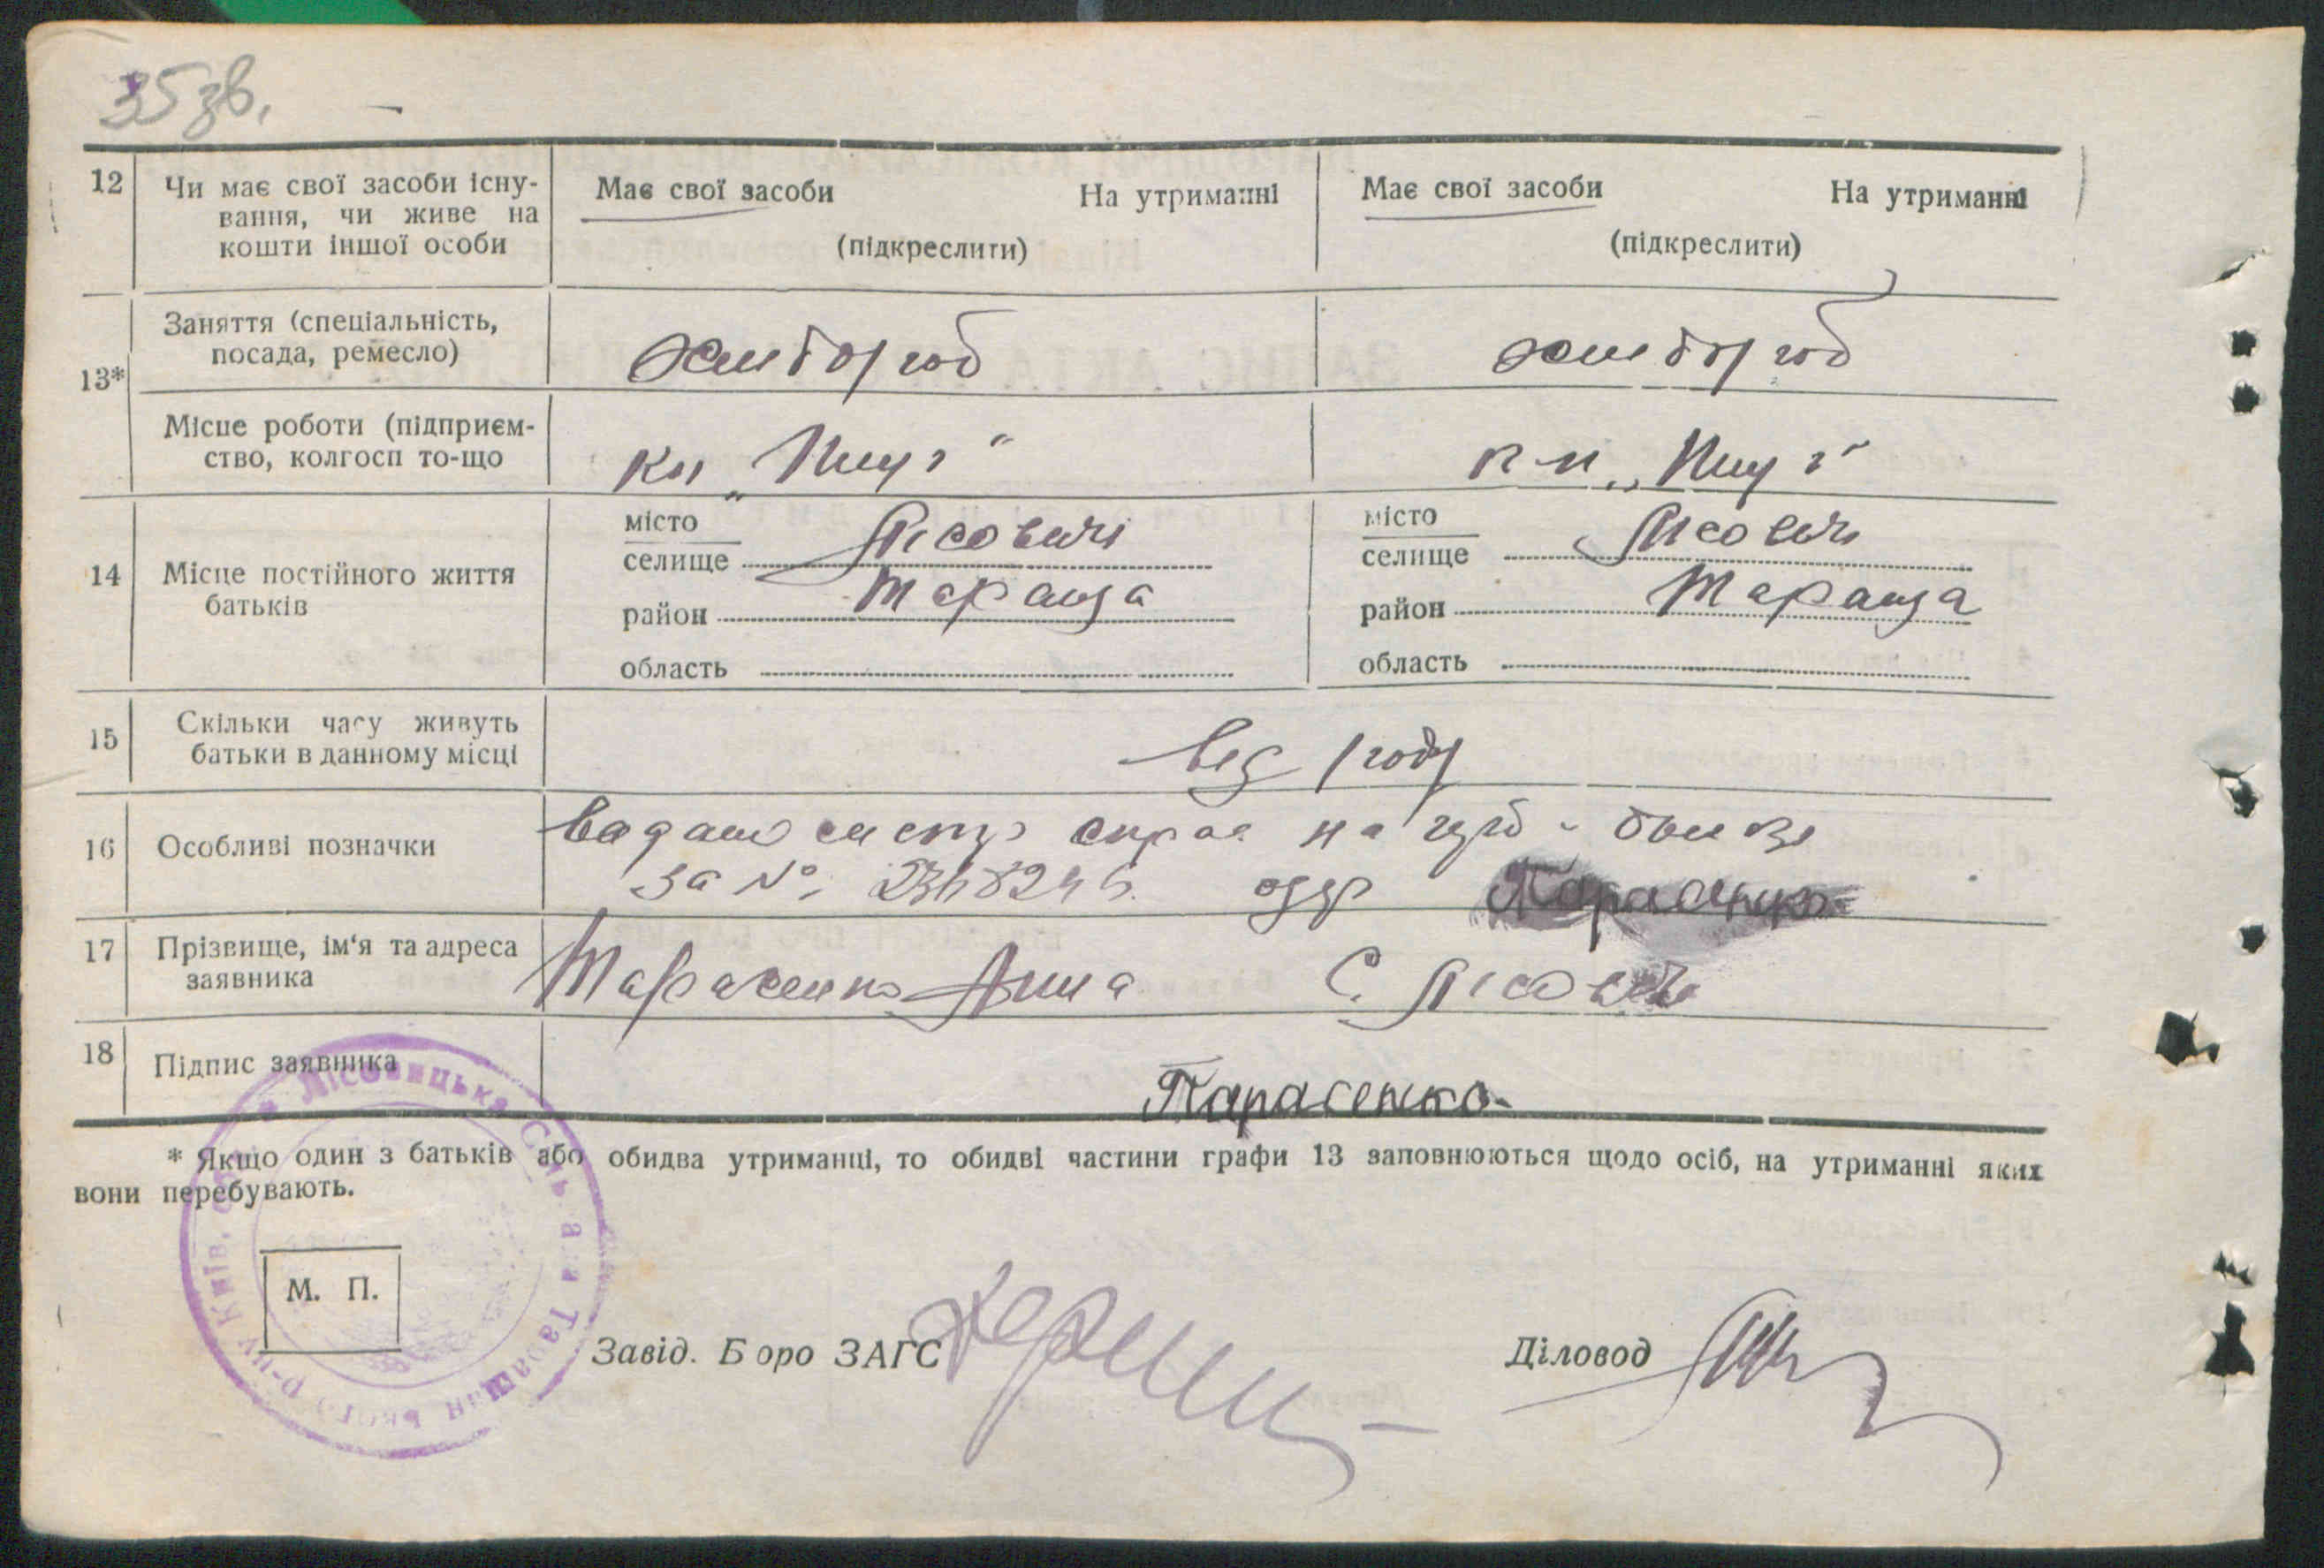 35 зв.
12 Чи має свої засоби існу-
вання, чи живе на
кошти іншої особи
Має свої засоби На утриманні
(підкреслити)
Має свої засоби На утриманні
(підкреслити)
13*
Заняття (спеціальність,
посада, ремесло)
хлибороб
хлибороб
Місце роботи (підприєм-
ство, колгосп то-що
кл „Плуг“
к-л „Плуг“
14 Місце постійного життя
батьків
місто
селище Лісовичі
район Тараща
область
місто
селище Лісовичі
район Тараща
область
15 Скільки часу живуть
батьки в данному місці
від 1 году
16 Особливі позначки
за №
Тарасенко
17 Прізвище, ім'я та адреса
заявника
Тарасенко Анна С. Лісовичі
18 Підпис заявника
Тарасенко
* Якщо один з батьків або обидва утриманці, то обидві частини графи 13 заповнюються щодо осіб, на утриманні яких
вони перебувають.
М. П.
Завід. Б оро ЗАГС
Діловод
Лісовицька Сіль
Таращан ського р-ну Київ.